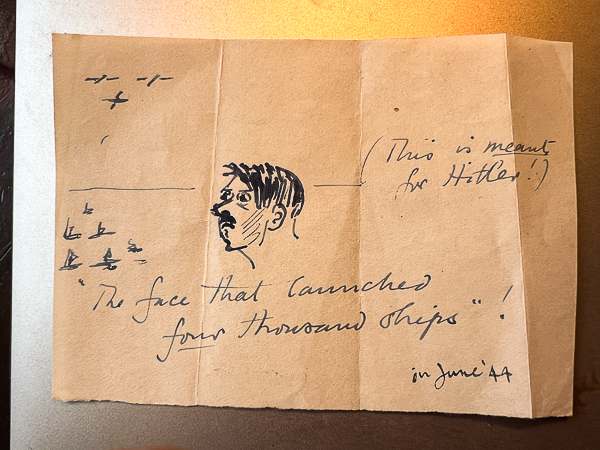 (This is meant
for Hitler!)
"The face that launched
four thousand ships"!
in June '44